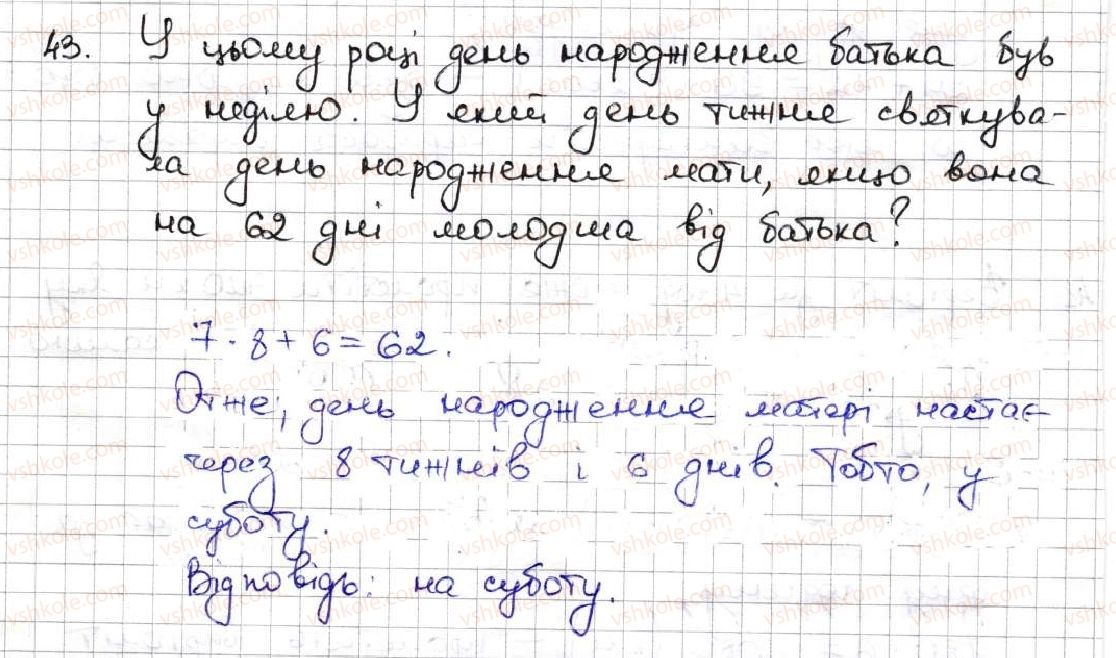 43. У цьому році день народження батька був
у неділю. У який день тижня святкува-
ла день народження мати, якщо вона
на 62 дні молодша від батька?
7 · 8 + 6 = 62.
Отже, день народження матері настає
через 8 тижнів і 6 днів. Тобто, у
суботу.
Відповідь: на суботу.